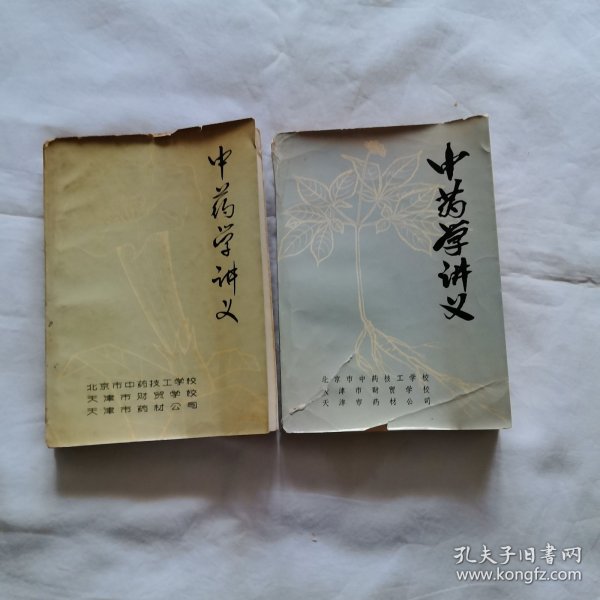 中药学讲义
北京市中药技工学校
天津市财贸学校
天津市药材公司
中药学讲义
北京市中药技工学校
天津市财贸学校
天津市药材公司
孔夫子旧书网
www.kongfz.com